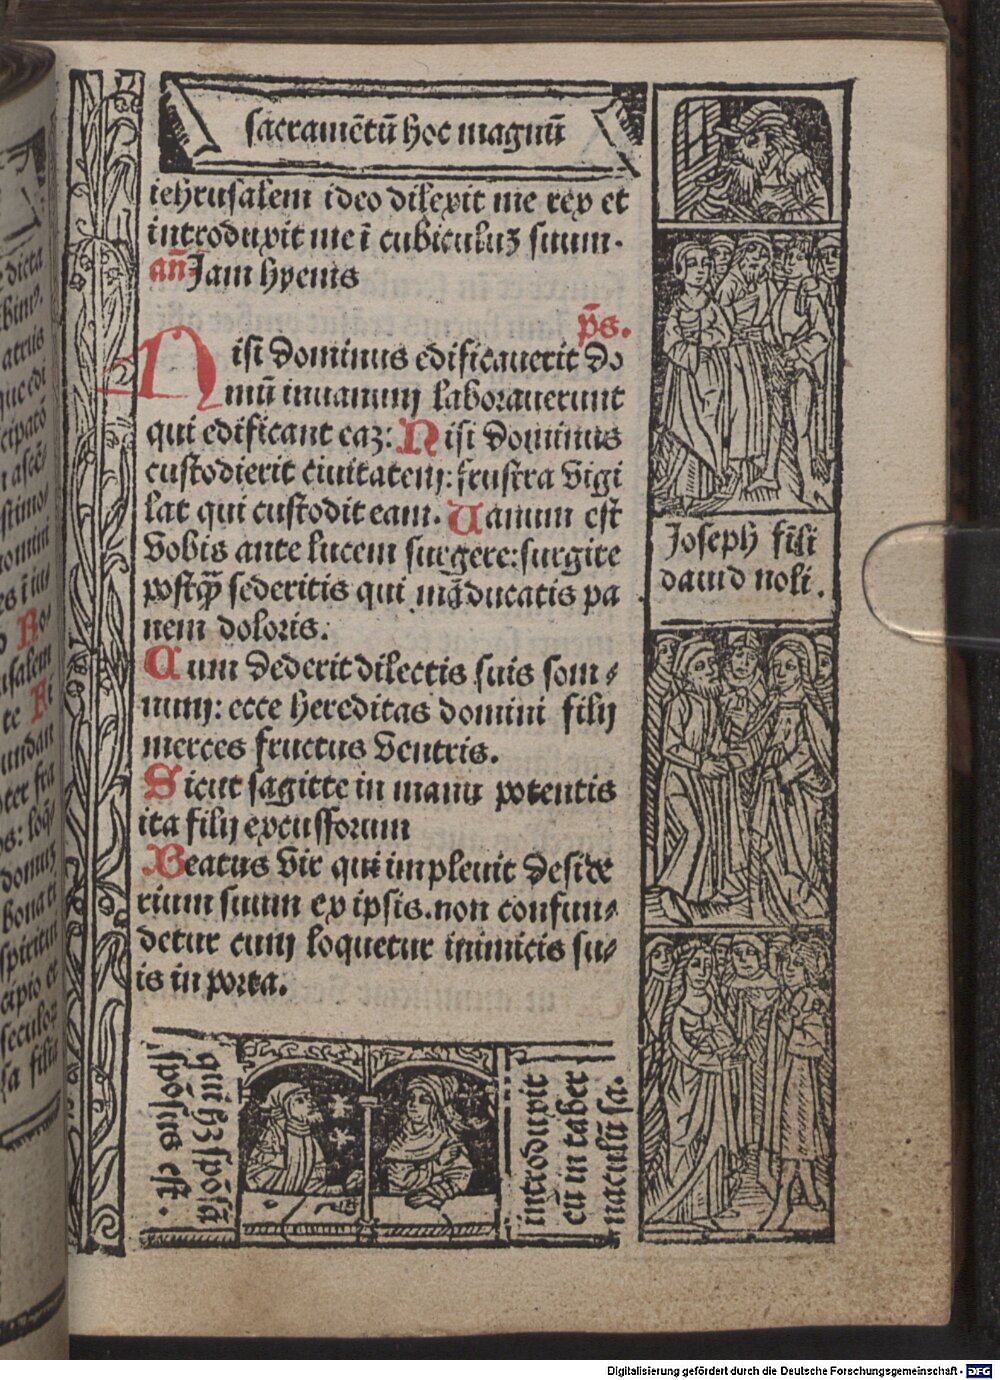 sacramētū hoc magnū
iehrusalem ideo dilexit me rex et
introduxit me ī cubiculuʒ suum.
an̄ Jam hyems
p̄s.
Nisi Dominus edificauerit Do
mū inuanum laborauerunt
qui edificant eaʒ: Nisi Dominus
custodierit ciuitatem: frustra vigi
lat qui custodit eam. Uanum est
vobis ante lucem surgere: surgite
postꝙ̄ sederitis qui māducatis pa
nem doloris.
Cum Dederit dilectis suis som⸗
num: ecce hereditas domini filij
merces fructus ventris.
Sicut sagitte in manu potentis
ita filij excussorum
Beatus vir qui impleuit deside
rium suum ex ipsis. non confun⸗
detur cum loquetur inimicis su⸗
is in porta.
Joseph fīli
dauid noli.
qui hʒ spōsā
spōsus est.
introduxit
eū in taber
naculū sa.
dicta
atrus
que edi
cipatō
ascē⸗
stimo⸗
nomini
es ī iu⸗
No⸗
usalem
te Et
undan
ter fra
os: loq̄
domuʒ
bona ti
spiritui
cipio et
seculoꝝ
Digitalisierung gefördert durch die Deutsche Forschungsgemeinschaft - DFG